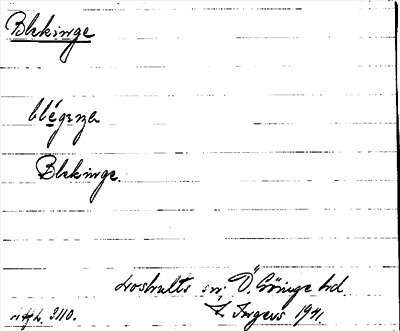 Blekinge
Blekinge.
Loshults sn, Ö. Göinge hd.
Ingers 1941
3110.